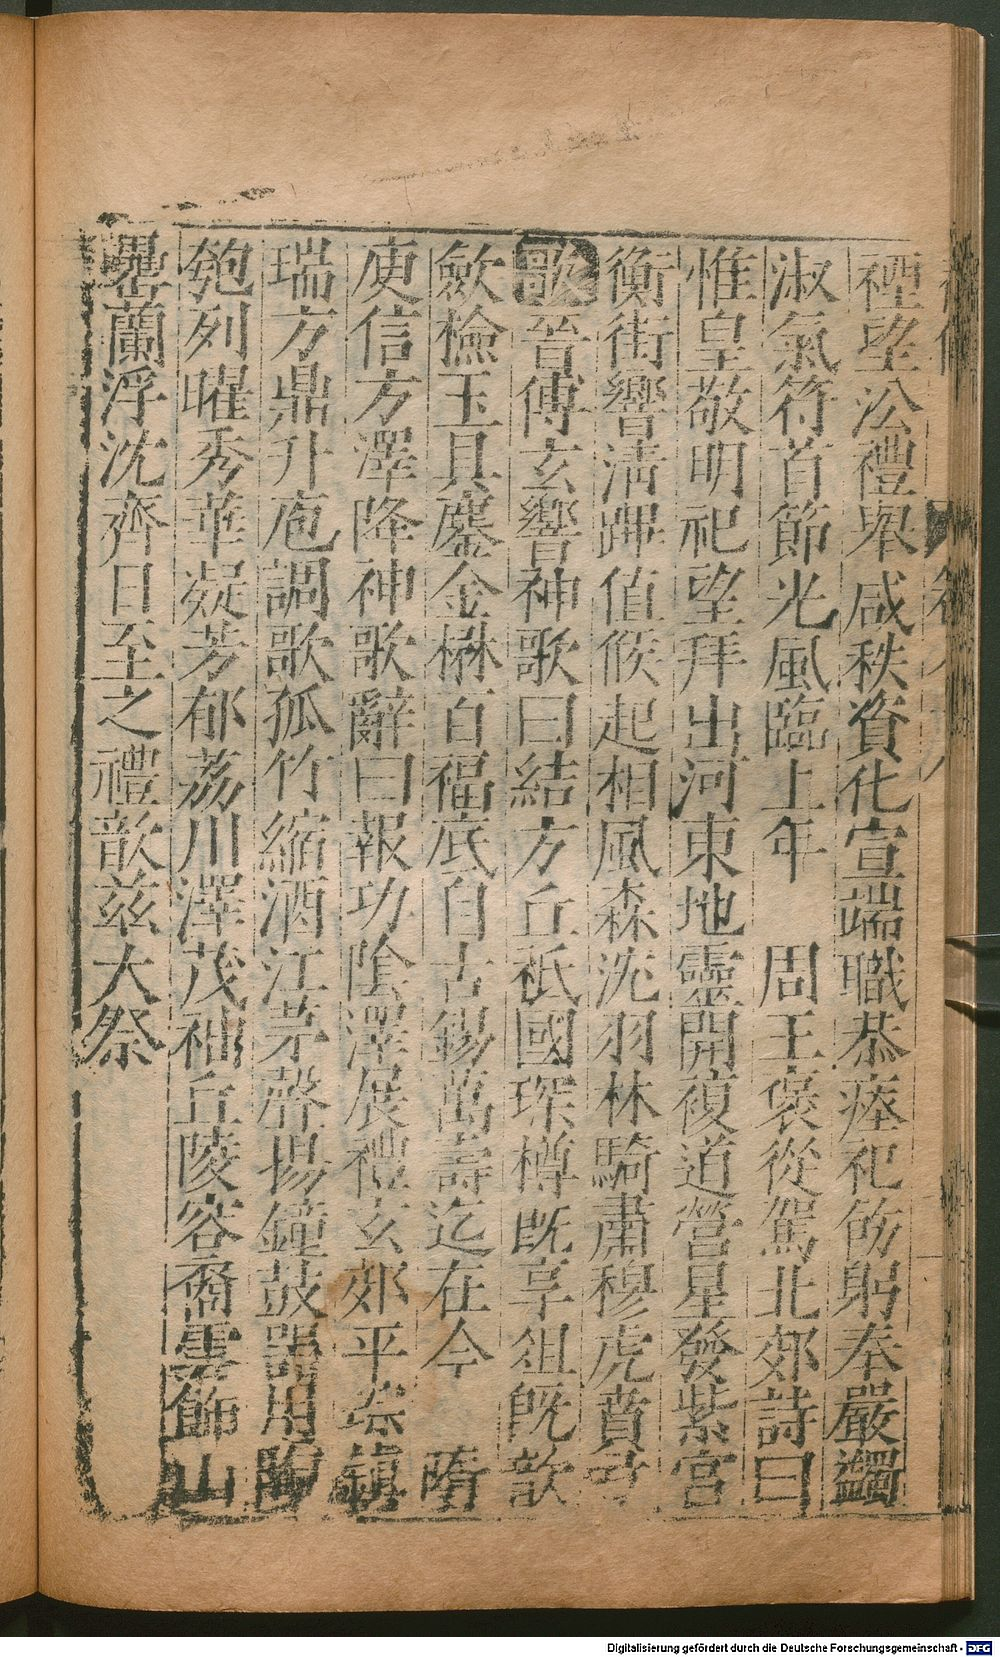 禋望汾禮舉咸秩資化宣端職恭瘞祀飭躬奉嚴蠲
淑氣符首節光風臨上年 周王褒從駕北郊詩曰
惟皇敬明祀望拜出河東地靈開複道營星發紫宮
衡街響清蹕值候起相風森沈羽林騎肅穆虎賁
歌晉傅玄饗神歌曰結方丘祗國琛樽既享俎既歆
歛檢玉具鏖金楙百福底自古錫萬壽迄在今 隋
庾信方澤降神歌辭曰報功陰澤展禮玄郊平琮鎮
瑞方鼎升庖調歌孤竹縮酒江茅聲揚鐘鼓器用陶
匏列曜秀華凝芳都荔川澤茂祉丘陵容裔雲飾山
罍蘭浮沈齊日至之禮歆兹大祭
Digitalisierung gefördert durch die Deutsche Forschungsgemeinschaft - DFG